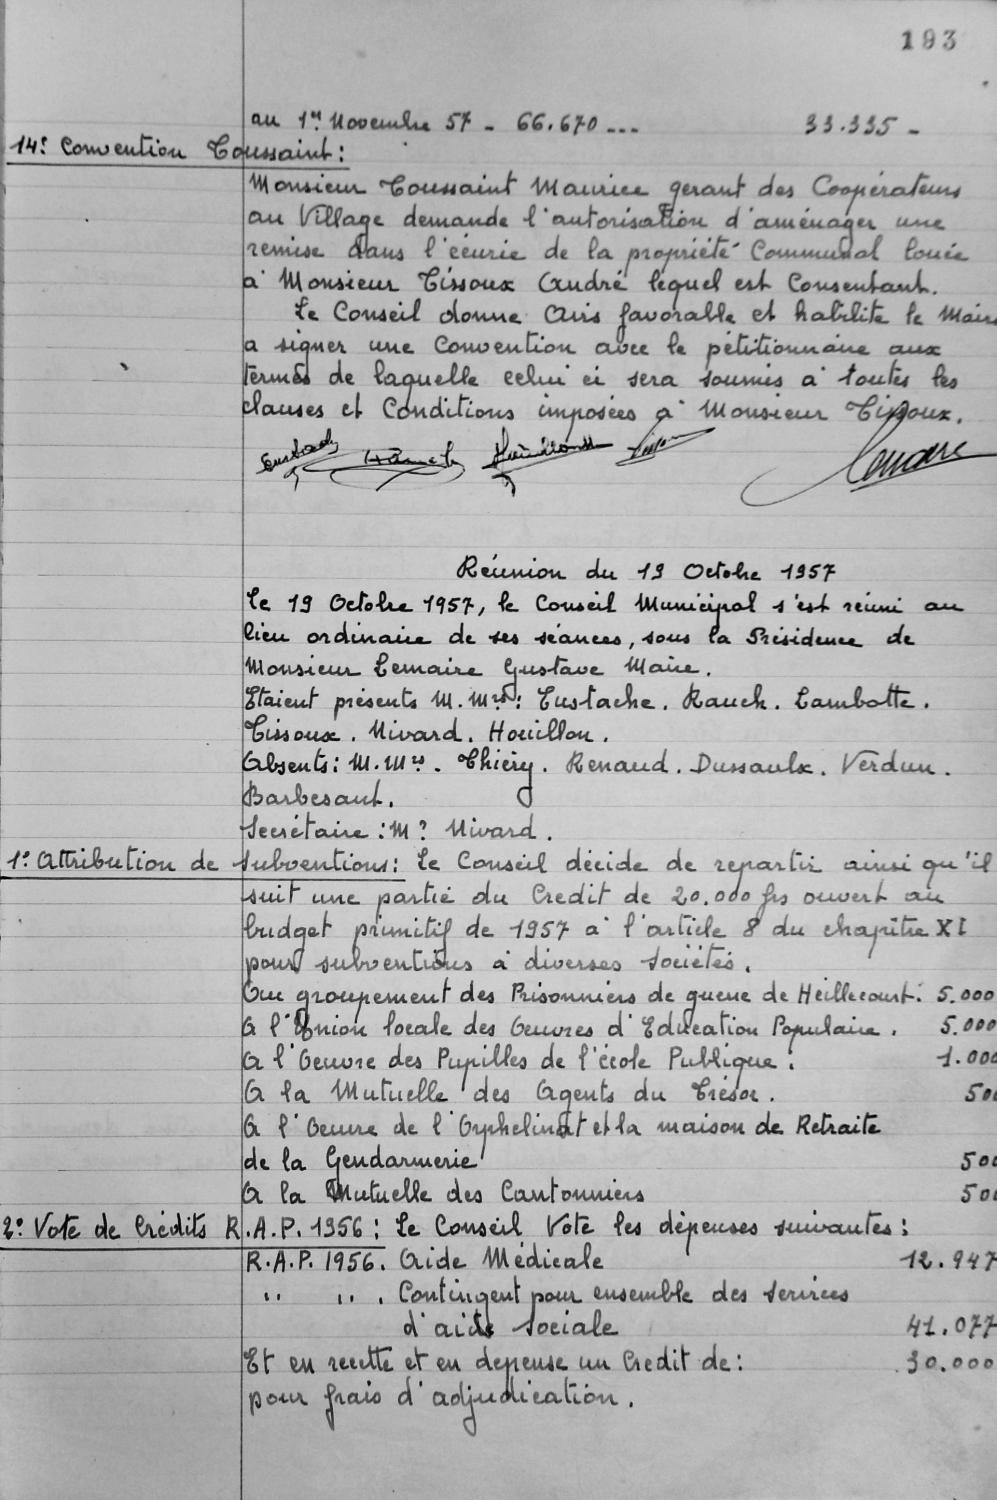 193
au 1er Novembre 57 - 66.670 --- 33.335 -
14º Convention Toussaint :
Monsieur Toussaint Maurice gerant des Coopérateurs
au Village demande l'autorisation d'aménager une
remise dans l'écurie de la propriété Communal louée
à Monsieur Tissoux André lequel est Consentant.
Le Conseil donne Avis favorable et habilite le Maire
a signer une Convention avec le pétitionnaire aux
termes de laquelle celui ci sera soumis à toutes les
clauses et Conditions imposées à Monsieur Tissoux.
Eustache Lemaire
Réunion du 19 Octobre 1957
Le 19 Octobre 1957, le Conseil Municipal s'est réuni au
lieu ordinaire de ses séances, sous la Présidence de
Monsieur Lemaire Gustave Maire.
Etaient présents M.Mrs : Eustache. Rauch. Lambotte.
Tissoux. Nivard. Houillon.
Absents : M.Mrs. Thiéry. Renaud. Dussaulx. Verdun.
Barbesant.
Secrétaire : Mr Nivard.
1º Attribution de Subventions : Le Conseil décide de repartir ainsi qu'il
suit une partie du Credit de 20.000 frs ouvert au
budget primitif de 1957 à l'article 8 du chapitre XI
pour subventions à diverses Sociétés.
Au groupement des Prisonniers de guerre de Heillecourt : 5.000
A l'Union locale des Oeuvres d'Education Populaire. 5.000
A l'Oeuvre des Pupilles de l'école Publique : 1.000
A la Mutuelle des Agents du Trésor. 500
A l'Oeuvre de l'Orphelinat et la maison de Retraite
de la Gendarmerie 500
A la Mutuelle des Cantonniers 500
2º Vote de Crédits R.A.P. 1956 : Le Conseil Vote les dépenses suivantes :
R.A.P. 1956. Aide Médicale 12.947
" " . Contingent pour ensemble des Services
d'aide Sociale 41.077
Et en recette et en depense un Credit de : 30.000
pour frais d'adjudication.